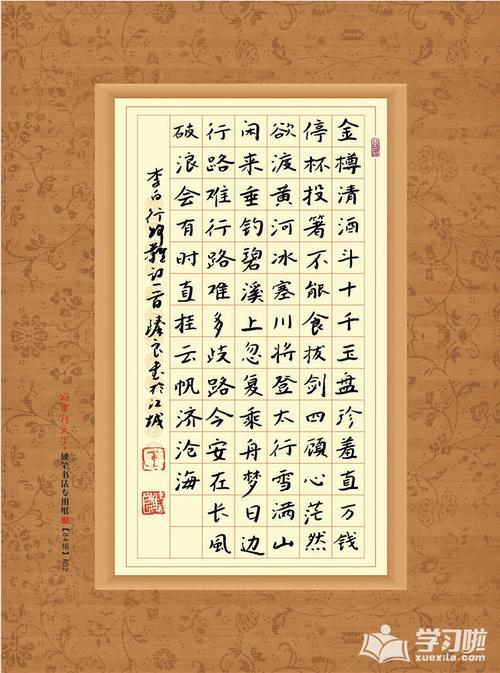 金樽清酒斗十千玉盘珍羞直万钱
停杯投箸不能食拔剑四顾心茫然
欲渡黄河冰塞川将登太行雪满山
闲来垂钓碧溪上忽复乘舟梦日边
行路难行路难多歧路今安在长风
破浪会有时直挂云帆济沧海
李白行路难诗一首 良书於江城
行天下·硬笔书法专用纸【84格】A02
学习啦
xuexila.com